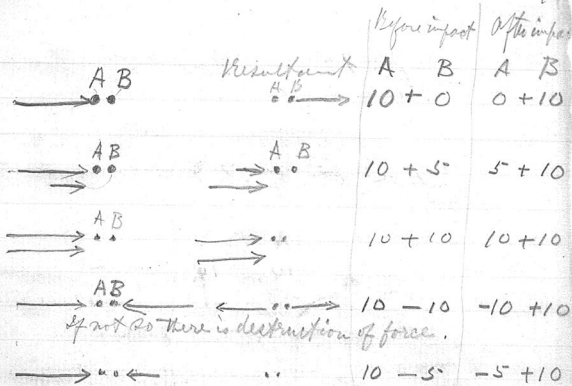 Before impact After impac
A B Resultant A B A B
A B 10 + 0 0 + 10
A B A B 10 + 5 5 + 10
A B 10 + 10 10 + 10
A B 10 - 10 -10 +10
If not so there is destruction of force.
10 - 5 -5 + 10